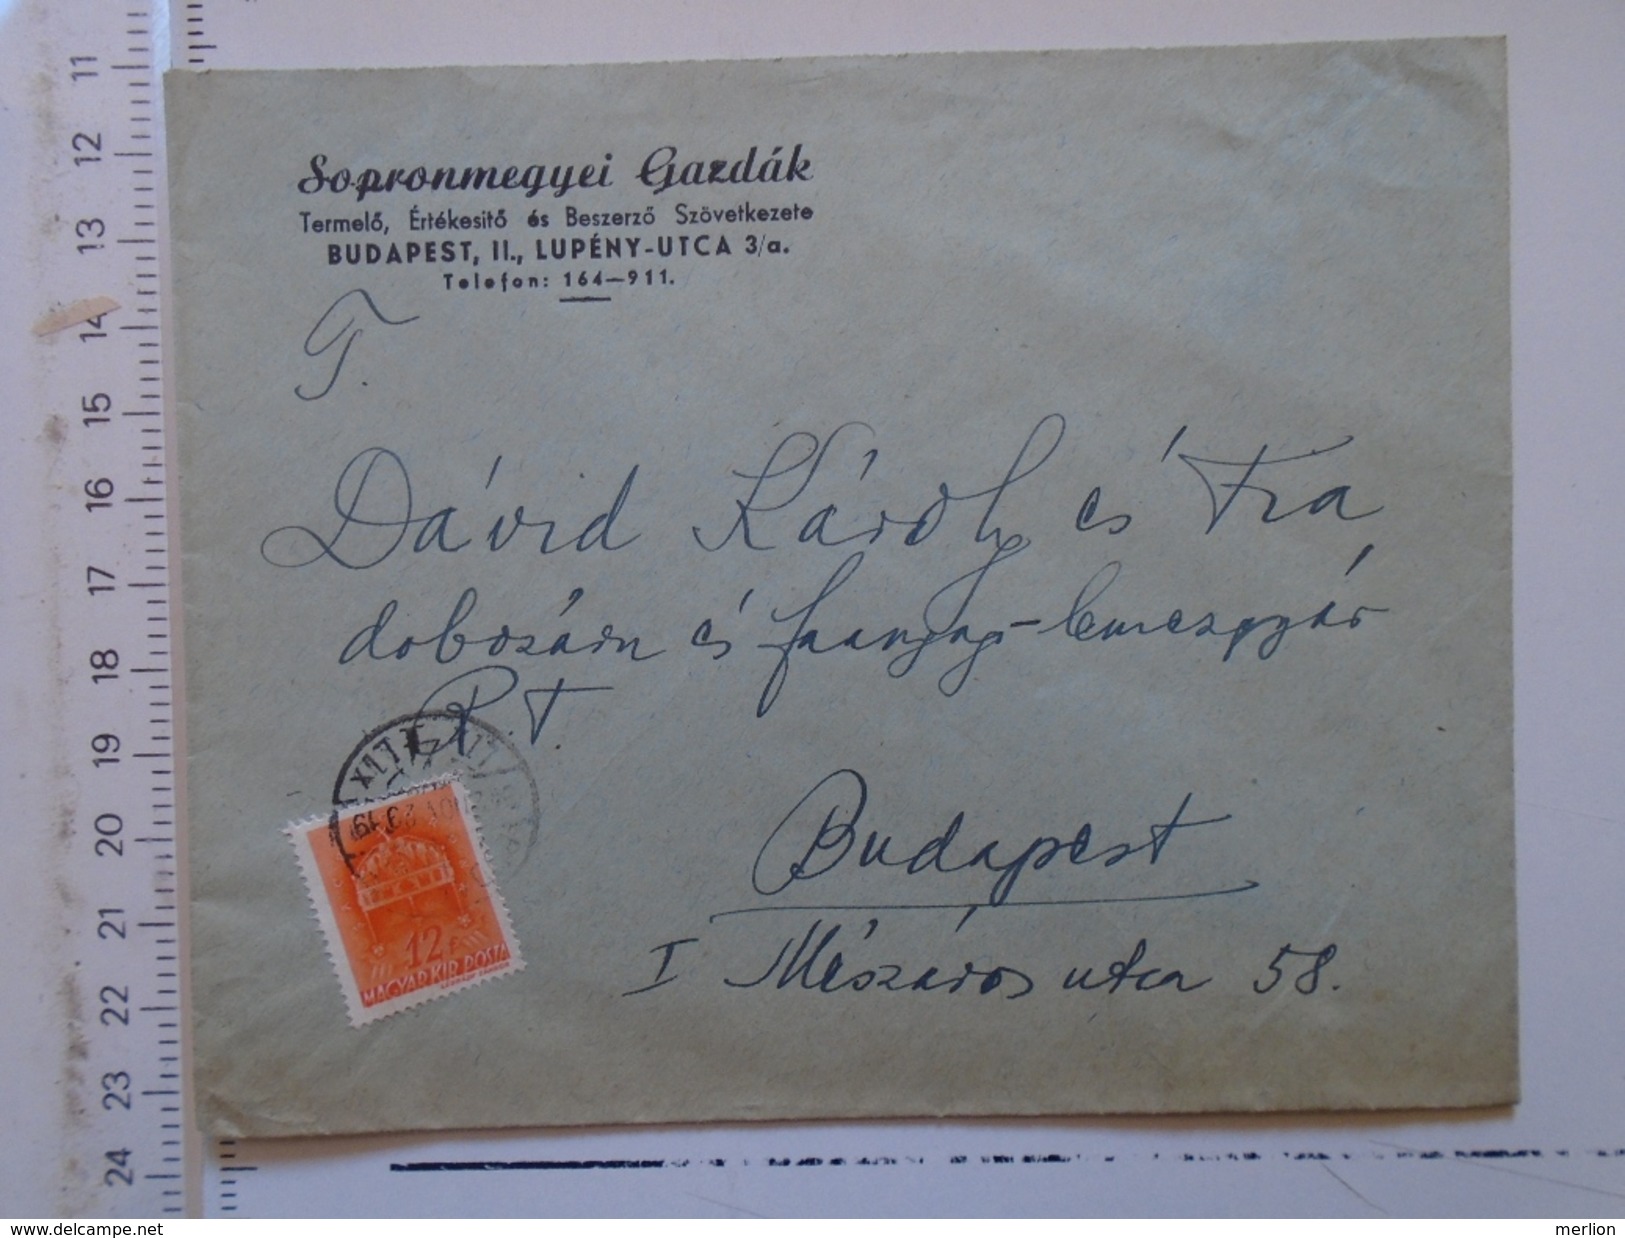 11
12
13
14
15
16
17
18
19
20
21
22
23
24
Sopronmegyei Gazdák
Termelő, Értékesitő és Beszerző Szövetkezete
BUDAPEST, II., LUPÉNY-UTCA 3/a.
Telefon: 164—911.
T.
Dávid Károly és Fia
dobozáru és faanyag-lemezgyár
R.T.
Budapest
I Mészáros utca 58.
12 f
MAGYAR KIR. POSTA
www.delcampe.net
merlion